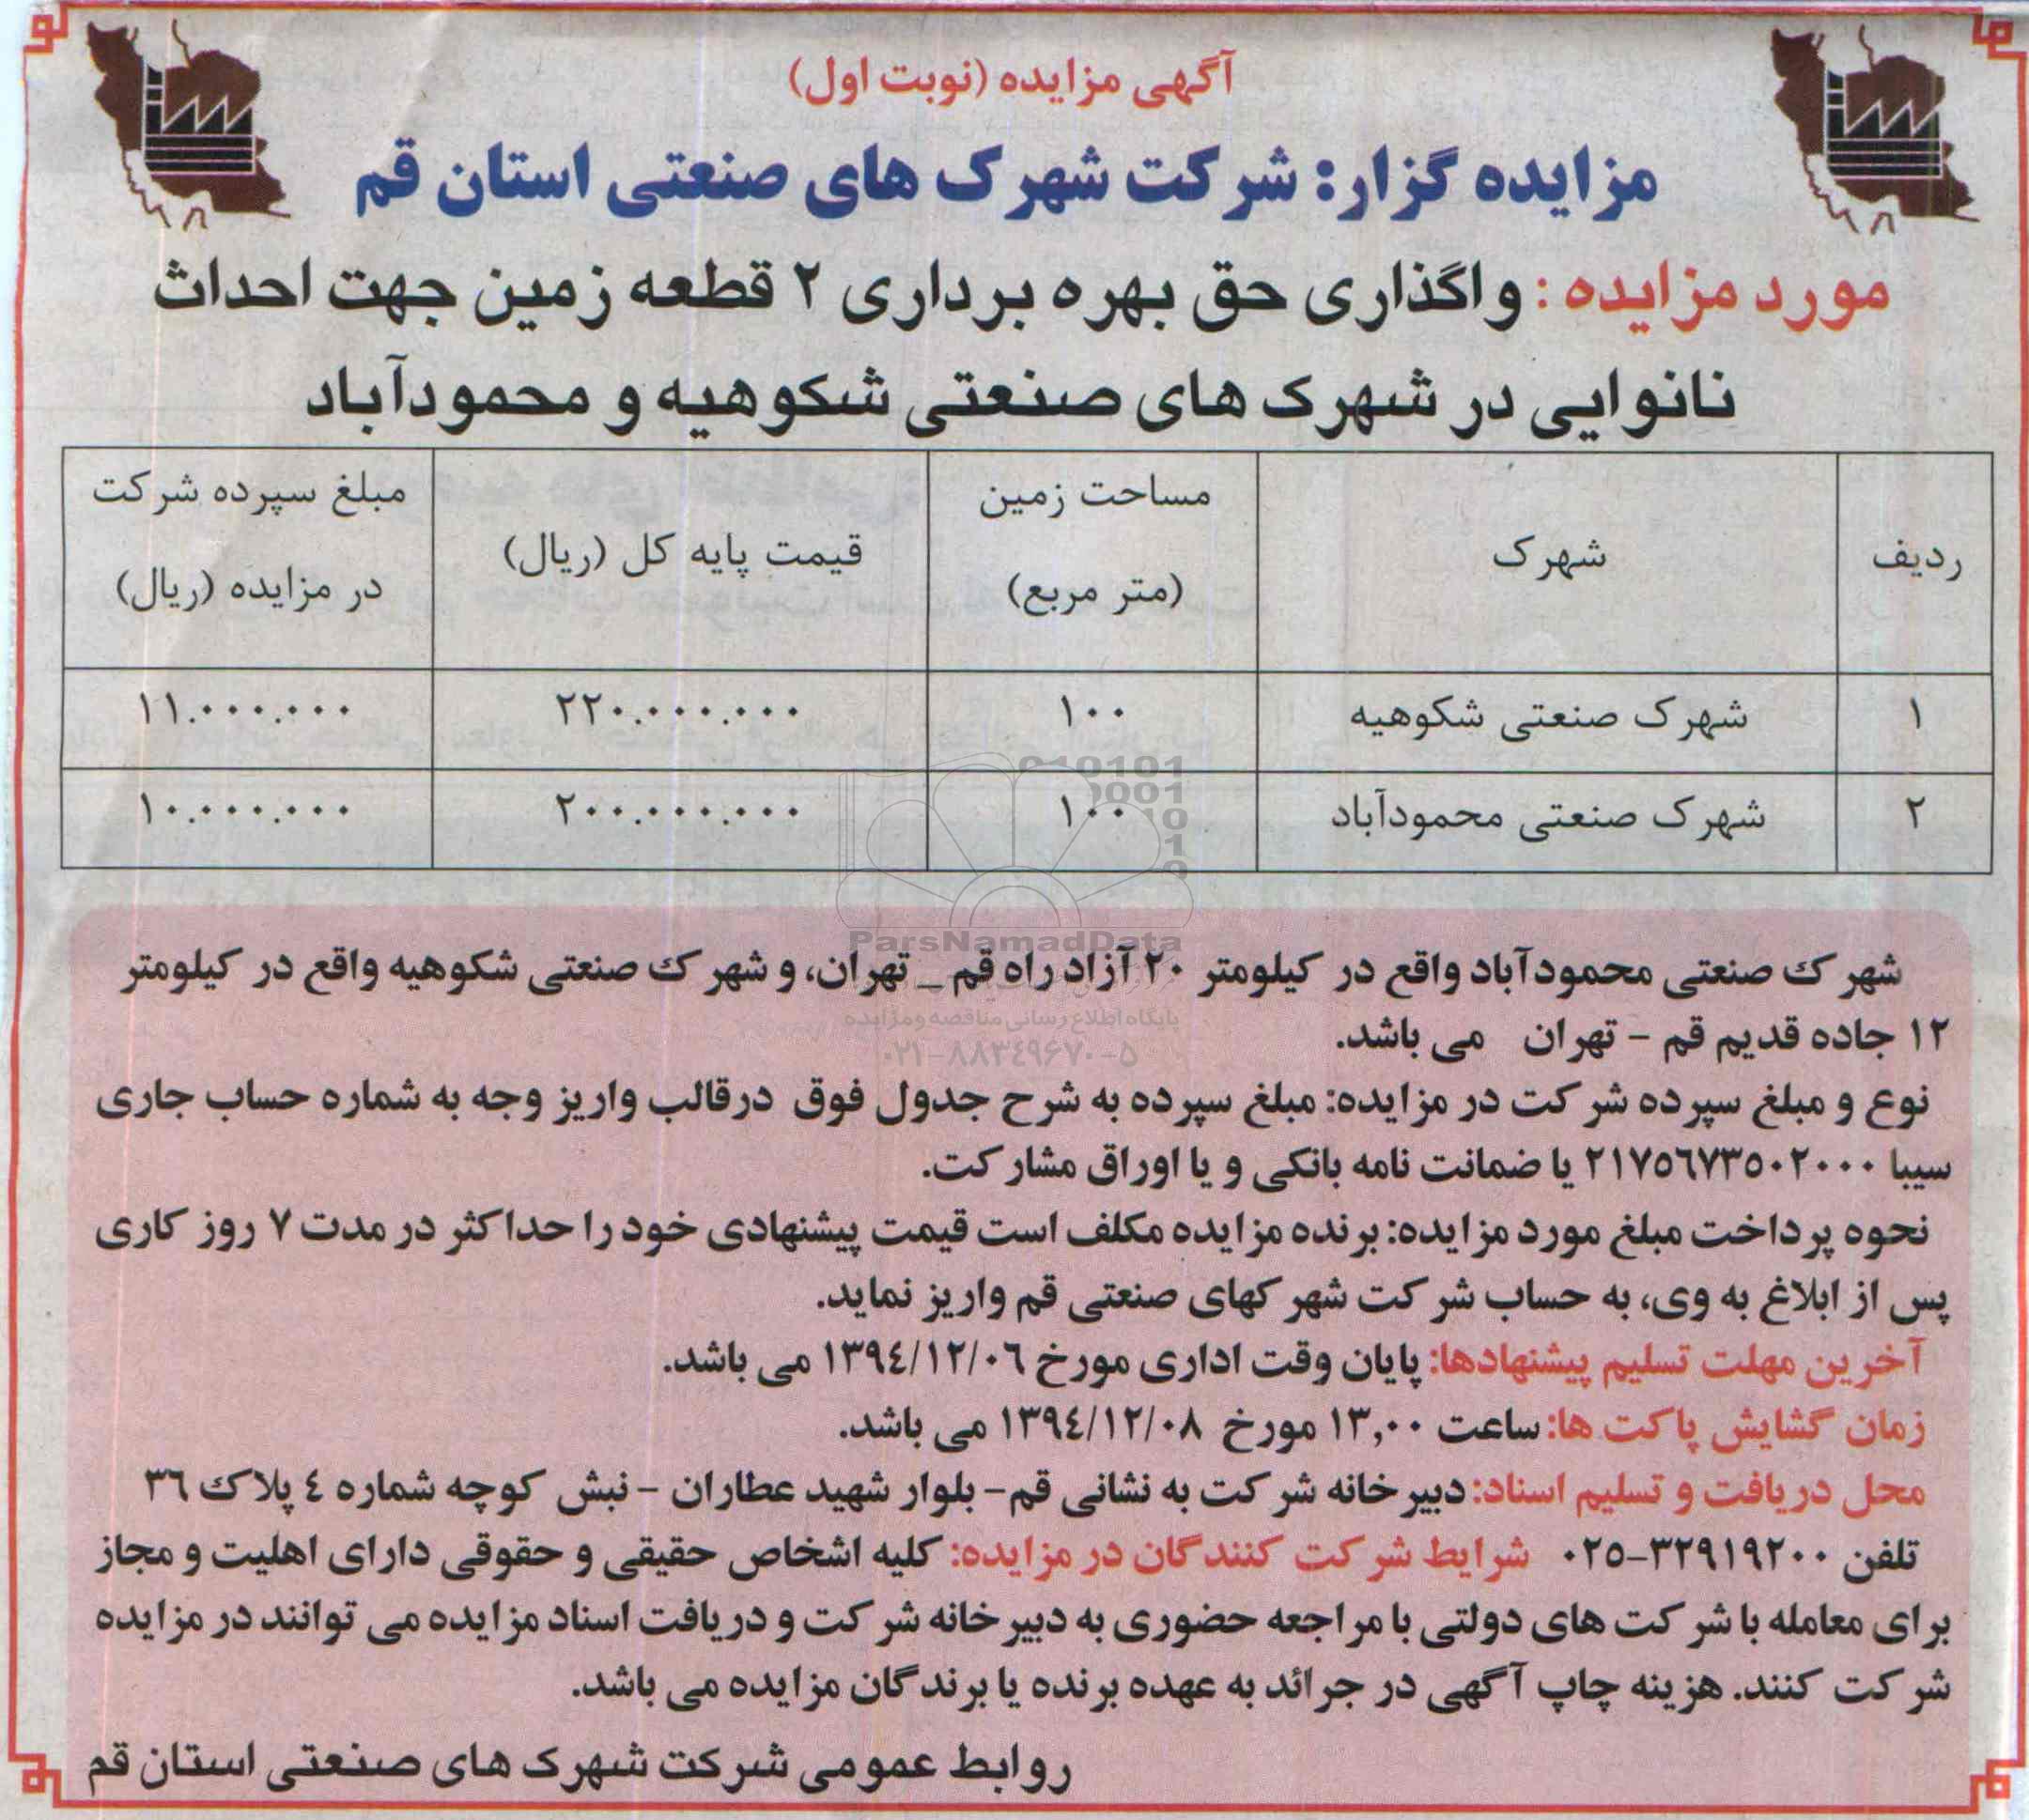 آگهی مزایده (نوبت اول)
مزایده گزار: شرکت شهرک های صنعتی استان قم
مورد مزایده : واگذاری حق بهره برداری ۲ قطعه زمین جهت احداث
نانوایی در شهرک های صنعتی شکوهیه و محمودآباد
ردیف	شهرک	مساحت زمین (متر مربع)	قیمت پایه کل (ریال)	مبلغ سپرده شرکت در مزایده (ریال)
۱	شهرک صنعتی شکوهیه	۱۰۰	۲۲۰.۰۰۰.۰۰۰	۱۱.۰۰۰.۰۰۰
۲	شهرک صنعتی محمودآباد	۱۰۰	۲۰۰.۰۰۰.۰۰۰	۱۰.۰۰۰.۰۰۰
ParsNamadData
پایگاه اطلاع رسانی مناقصه ومزایده
۰۲۱-۸۸۳۴۹۶۷۰-۵
شهرک صنعتی محمودآباد واقع در کیلومتر ۲۰ آزاد راه قم _ تهران، و شهرک صنعتی شکوهیه واقع در کیلومتر
۱۲ جاده قدیم قم - تهران می باشد.
نوع و مبلغ سپرده شرکت در مزایده: مبلغ سپرده به شرح جدول فوق درقالب واریز وجه به شماره حساب جاری
سیبا ۲۱۷۵۶۷۳۵۰۲۰۰۰ یا ضمانت نامه بانکی و یا اوراق مشارکت.
نحوه پرداخت مبلغ مورد مزایده: برنده مزایده مکلف است قیمت پیشنهادی خود را حداکثر در مدت ۷ روز کاری
پس از ابلاغ به وی، به حساب شرکت شهرکهای صنعتی قم واریز نماید.
آخرین مهلت تسلیم پیشنهادها: پایان وقت اداری مورخ ۱۳۹٤/۱۲/۰٦ می باشد.
زمان گشایش پاکت ها: ساعت ۱۳,۰۰ مورخ ۱۳۹٤/۱۲/۰۸ می باشد.
محل دریافت و تسلیم اسناد: دبیرخانه شرکت به نشانی قم- بلوار شهید عطاران - نبش کوچه شماره ٤ پلاک ۳٦
تلفن ۳۲۹۱۹۲۰۰-۰۲۵ شرایط شرکت کنندگان در مزایده: کلیه اشخاص حقیقی و حقوقی دارای اهلیت و مجاز
برای معامله با شرکت های دولتی با مراجعه حضوری به دبیرخانه شرکت و دریافت اسناد مزایده می توانند در مزایده
شرکت کنند. هزینه چاپ آگهی در جرائد به عهده برنده یا برندگان مزایده می باشد.
روابط عمومی شرکت شهرک های صنعتی استان قم